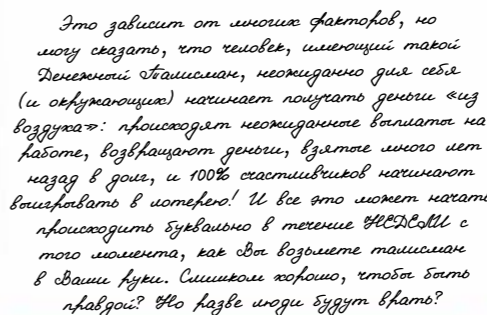 Это зависит от многих факторов, но
могу сказать, что человек, имеющий такой
Денежный Талисман, неожиданно для себя
(и окружающих) начинает получать деньги «из
воздуха»: происходят неожиданные выплаты на
работе, возвращают деньги, взятые много лет
назад в долг, и 100% счастливчиков начинают
выигрывать в лотерею! И все это может начать
происходить буквально в течение НЕДЕЛИ с
того момента, как Вы возьмете талисман
в Ваши руки. Слишком хорошо, чтобы быть
правдой? Но разве люди будут врать?